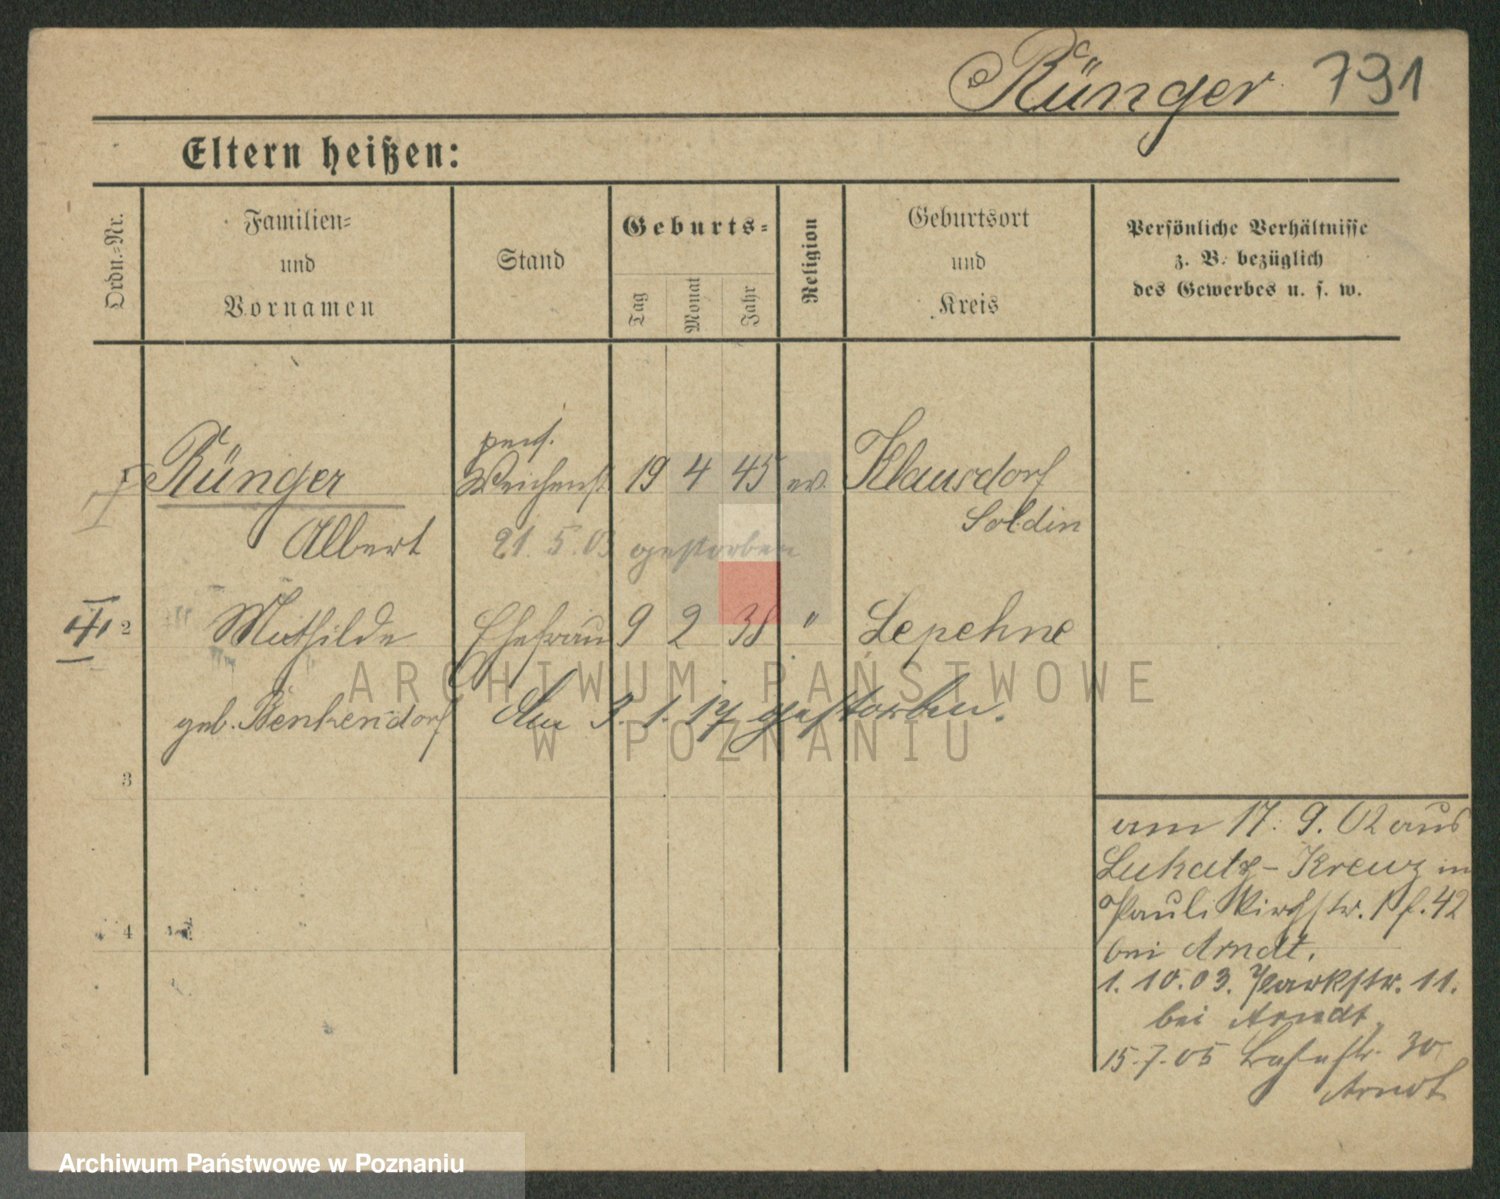 Rünger 791
Eltern heißen:
Ordn.-Nr.
Familien-
und
Vornamen
Stand
Geburts-
Tag
Monat
Jahr
Religion
Geburtsort
und
Kreis
Persönliche Verhältnisse
z. B. bezüglich
des Gewerbes u. s. w.
pens.
Rünger Weichenst 19 4 45 ev. Klausdorf
Soldin
Albert 21. 5. 03 gestorben
2 Mathilde Ehefrau 9 2 38 " Lepehne
geb. Benkendorf Am 3. 1. 17 gestorben.
3
4
am 17. 9. 02 aus
Lukatz-Kreuz in
Paulikirchstr. 1 f. 42
bei Arndt.
1. 10. 03. Parkstr. 11.
bei Arndt.
15. 7. 05 30
Arndt
ARCHIWUM PAŃSTWOWE
W POZNANIU
Archiwum Państwowe w Poznaniu